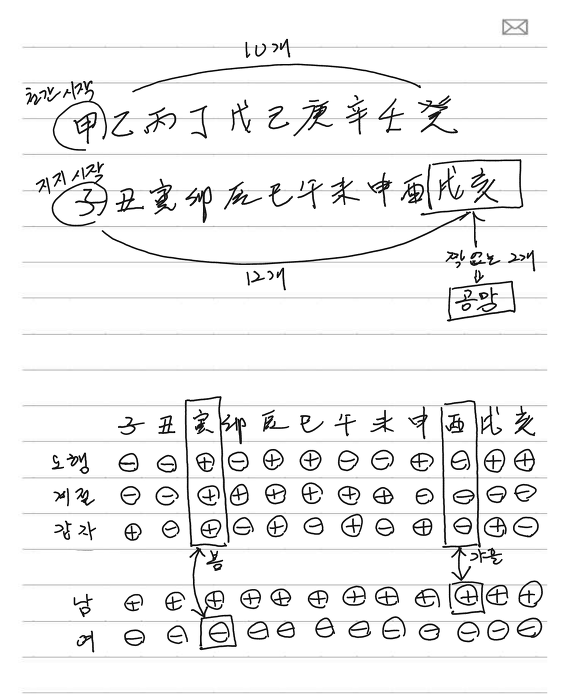 10개
천간 시작
甲乙丙丁戊己庚辛壬癸
지지 시작
子丑寅卯辰巳午未申酉戌亥
12개
짝 없는 2개
공망
子 丑 寅 卯 辰 巳 午 未 申 酉 戌 亥
오행 ⊖ ⊖ ⊕ ⊖ ⊕ ⊕ ⊖ ⊖ ⊕ ⊖ ⊕ ⊕
계절 ⊖ ⊖ ⊕ ⊕ ⊕ ⊕ ⊕ ⊕ ⊖ ⊖ ⊖ ⊖
갑자 ⊕ ⊖ ⊕ ⊖ ⊕ ⊖ ⊕ ⊖ ⊕ ⊖ ⊕ ⊖
봄 가을
남 ⊕ ⊕ ⊕ ⊕ ⊕ ⊕ ⊕ ⊕ ⊕ ⊕ ⊕ ⊕
여 ⊖ ⊖ ⊖ ⊖ ⊖ ⊖ ⊖ ⊖ ⊖ ⊖ ⊖ ⊖